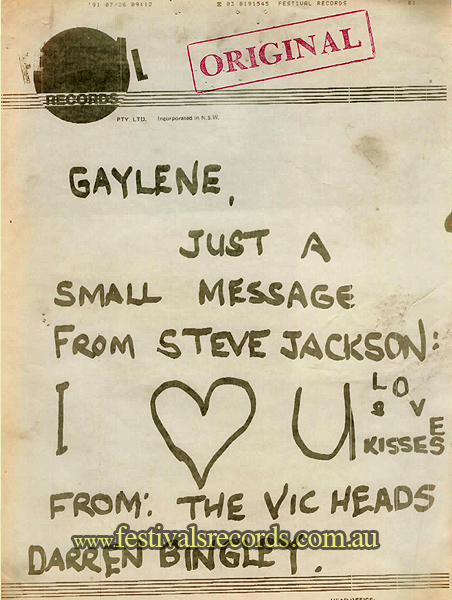 '91 07/26 09:12 ☎ 03 8191545 FESTIVAL RECORDS 01
ORIGINAL
RECORDS
PTY. LTD. Incorporated in N.S.W.
GAYLENE,
JUST A
SMALL MESSAGE
FROM STEVE JACKSON:
I ♥ U LOVE
& KISSES
FROM: THE VIC HEADS
www.festivalsrecords.com.au
DARREN BINGLEY.
HEAD OFFICE: